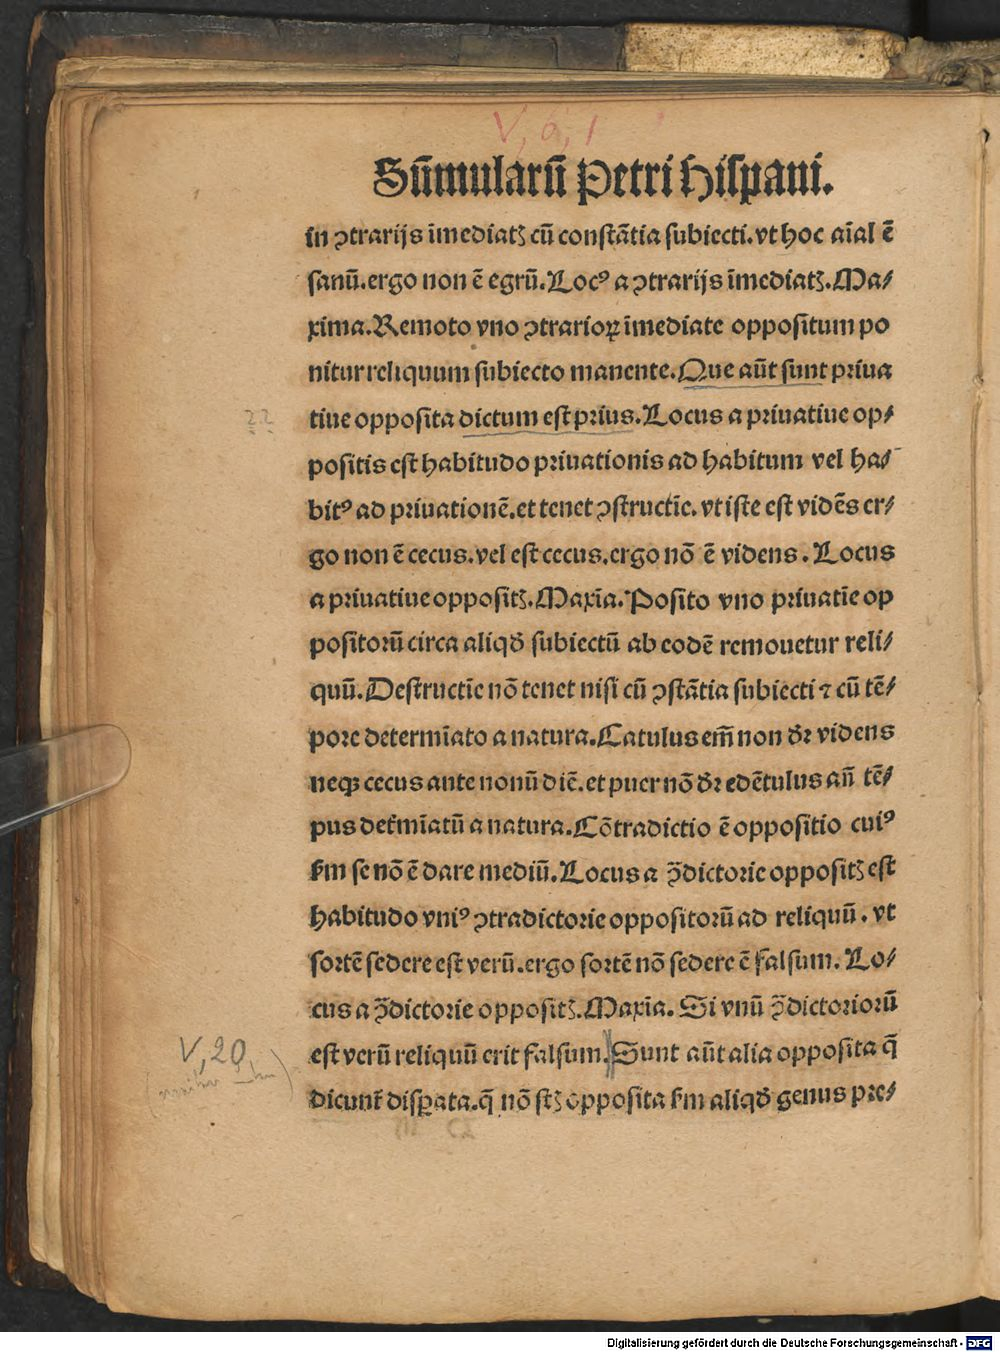 V, 6, 1
Sūmularū Petri Hispani.
in ↄtrarijs īmediatꝫ cū constātia subiecti. vt hoc aīal ē
sanū. ergo non ē egrū. Locꝰ a ↄtrarijs īmediatꝫ. Ma⸗
xima. Remoto vno ↄtrarioꝝ īmediate oppositum po
nitur reliquum subiecto manente. Que aūt sunt priua
tiue opposita dictum est prius. Locus a priuatiue op⸗
22
positis est habitudo priuationis ad habitum vel ha⸗
bitꝰ ad priuationē. et tenet ↄstructīe. vt iste est vidēs er⸗
go non ē cecus. vel est cecus. ergo nō ē videns. Locus
a priuatiue oppositꝫ. Maxīa. Posito vno priuatīe op
positorū circa aliqđ subiectū ab eodē remouetur reli⸗
quū. Destructīe nō tenet nisi cū ↄstātia subiecti ⁊ cū tē⸗
pore determīato a natura. Catulus em̄ non dꝛ videns
neqꝫ cecus ante nonū diē. et puer nō dꝛ edētulus an̄ tē⸗
pus det̄mīatū a natura. Cōtradictio ē oppositio cuiꝰ
km se nō ē dare mediū. Locus a ↄ̄dictorie oppositꝫ est
habitudo vniꝰ ↄtradictorie oppositorū ad reliquū. vt
sortē sedere est verū. ergo sortē nō sedere ē falsum. Lo⸗
cus a ↄ̄dictorie oppositꝫ. Maxīa. Si vnū ↄ̄dictoriorū
est verū reliquū erit falsum. Sunt aūt alia opposita q̄
V, 20
dicunt̄ disꝑata. q̄ nō stꝫ opposita km aliqđ genus pre⸗
Digitalisierung gefördert durch die Deutsche Forschungsgemeinschaft - DFG